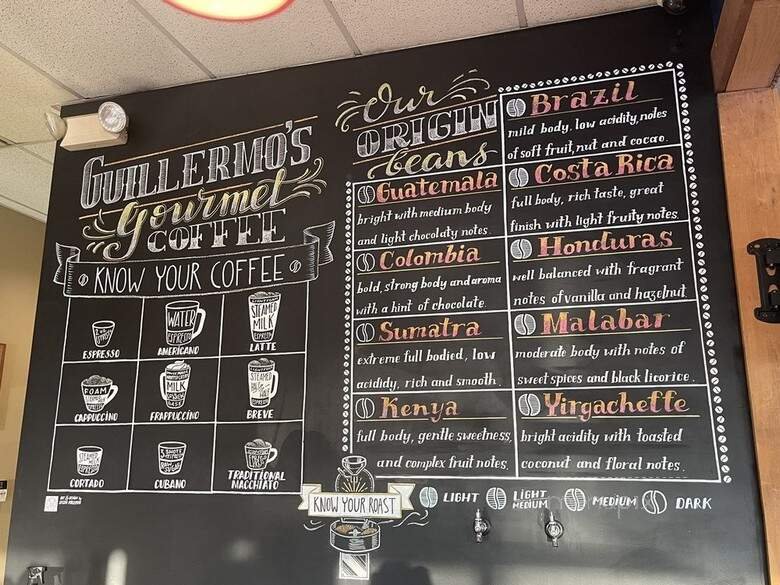 GUILLERMO'S
Gourmet
COFFEE
KNOW YOUR COFFEE
ESPRESSO
WATER
ESPRESSO
AMERICANO
STEAMED
MILK
ESPRESSO
LATTE
FOAM
CAPPUCCINO
MILK
FRAPPUCCINO
STEAMED
BREVE
CORTADO
CUBANO
TRADITIONAL
MACCHIATO
Our
ORIGIN
beans
Guatemala
bright with medium body
and light chocolaty notes.
Colombia
bold, strong body and aroma
with a hint of chocolate.
Sumatra
extreme full bodied, low
acididy, rich and smooth.
Kenya
full body, gentle sweetness,
and complex fruit notes.
Brazil
mild body, low acidity, notes
of soft fruit, nut and cocao.
Costa Rica
full body, rich taste, great
finish with light fruity notes.
Honduras
well balanced with fragrant
notes of vanilla and hazelnut.
Malabar
moderate body with notes of
sweet spices and black licorice.
Yirgacheffe
bright acidity with toasted
coconut and floral notes.
KNOW YOUR ROAST
LIGHT
LIGHT
MEDIUM
MEDIUM
DARK